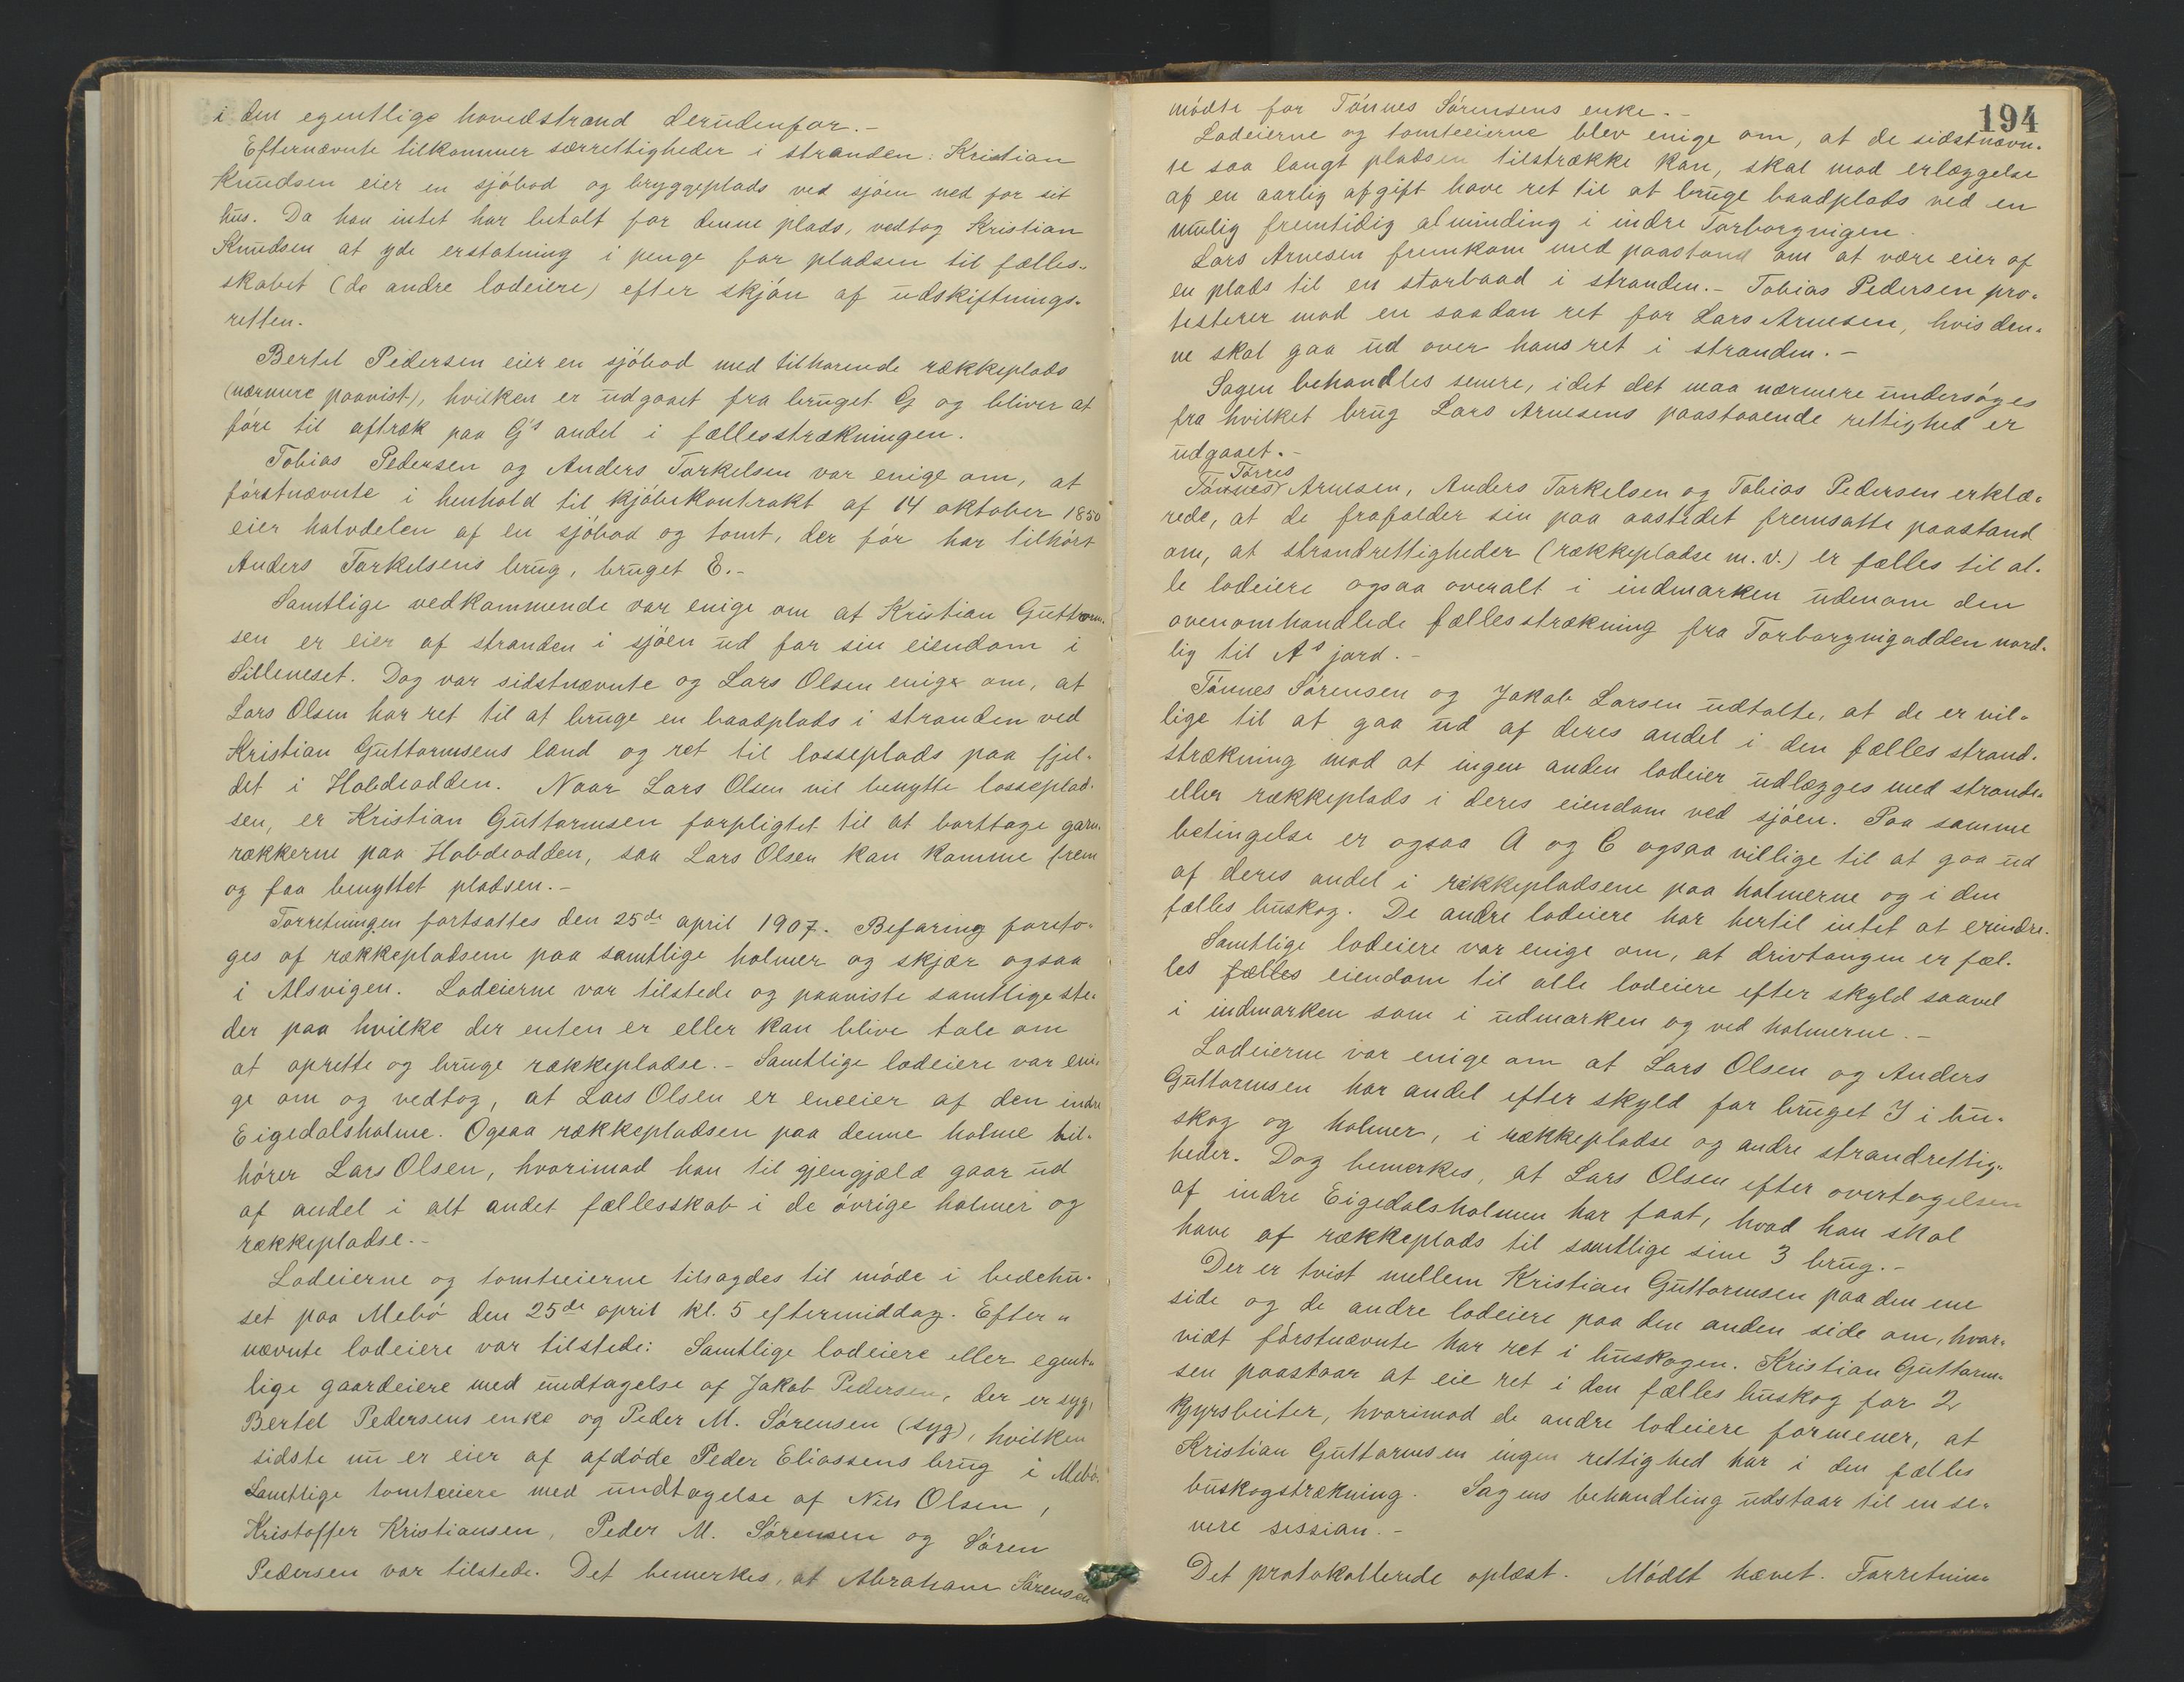 i den egentlige hovedstrand derudenfor.-
Efternævnte tilkommer særrettigheder i stranden: Kristian
Knudsen eier en sjöbod og bryggeplads ved sjöen ned for sit
hus. Da han intet har betalt for denne plads, vedtog Kristian
Knudsen at yde erstatning i penge for pladsen til fælles-
skabet (de andre lodeiere) efter skjön af udskiftnings-
retten.
Bertel Pedersen eier en sjöbod med tilhørende rækkeplads
(nærmere paavist), hvilken er udgaaet fra bruget G og bliver at
føre til aftræk paa G's andel i fællesstrækningen.
Tobias Pedersen og Anders Torkelsen var enige om, at
förstnævnte i henhold til kjöbekontrakt af 14 oktober 1850
eier halvdelen af en sjöbod og tomt, der för har tilhört
Anders Torkelsens brug, bruget E.-
Samtlige vedkommende var enige om at Kristian Guttorm-
sen er eier af stranden i sjöen ud for sin eiendom i
Silleneset. Dog var sidstnævnte og Lars Olsen enige om, at
Lars Olsen har ret til at bruge en baadplads i stranden ved
Kristian Guttormsens land og ret til losseplads paa fjel-
det i Habdeodden. Naar Lars Olsen vil benytte lossepladsen,
sen, er Kristian Guttormsen forpligtet til at borttage garn-
rækkerne paa Habdeodden, saa Lars Olsen kan komme frem
og faa benyttet pladsen.-
Forretningen fortsattes den 25de april 1907. Befaring foreto-
ges af rækkepladsene paa samtlige holmer og skjær ogsaa
i Alsvigen. Lodeierne var tilstede og paaviste samtlige ste-
der paa hvilke der enten er eller kan blive tale om
at oprette og bruge rækkepladse.- Samtlige lodeiere var eni-
ge om og vedtog, at Lars Olsen er eneeier af den indre
Eigedalsholme. Ogsaa rækkepladsen paa denne holme til-
hörer Lars Olsen, hvorimod han til gjengjæld gaar ud
af andel i alt andet fællesskab i de övrige holmer og
rækkepladse.-
Lodeierne og tomteeierne tilsagdes til möde i bedehu-
set paa Mebö den 25de april kl. 5 eftermiddag. Efter-
nævnte lodeiere var tilstede: Samtlige lodeiere eller egent-
lige gaardeiere med undtagelse af Jakob Pedersen, der er syg,
Bertel Pedersens enke og Peder M. Sörensen (syg), hvilken
sidste nu er eier af afdöde Peder Eliassens brug i Mebö.
Samtlige tomteeiere med undtagelse af Nils Olsen,
Kristoffer Kristiansen, Peder M. Sörensen og Sören
Pedersen var tilstede. Det bemerkes, at Abraham Sörensen
194
mödte for Tönnes Sörensens enke.-
Lodeierne og tomteeierne blev enige om, at de sidstnævn-
te saa langt pladsen tilstrække kan, skal mod erlæggelse
af en aarlig afgift have ret til at bruge baadplads ved en
mulig fremtidig alminding i indre Torborgvigen.
Lars Arnesen fremkom med paastand om at være eier af
en plads til en storbaad i stranden.- Tobias Pedersen pro-
testerer mod en saadan ret for Lars Arnesen, hvis den-
ne skal gaa ud over hans ret i stranden.-
Sagen behandles senere, idet det maa nærmere undersöges
fra hvilket brug Lars Arnesens paastaaende rettighed er
udgaaet.-
Tørres
Tönnes Arnesen, Anders Torkelsen og Tobias Pedersen erklæ-
rede, at de frafalder sin paa aastedet fremsatte paastand
om, at strandrettigheder (rækkepladse m.v.) er fælles til al-
le lodeiere ogsaa overalt i indmarken udenom den
ovenomhandlede fællesstrækning fra Torborgvigodden nord-
lig til A's jord.-
Tönnes Sörensen og Jakob Larsen udtalte, at de er vil-
lige til at gaa ud af deres andel i den fælles strand-
strækning mod at ingen anden lodeier udlægges med strand-
eller rækkeplads i deres eiendom ved sjöen. Paa samme
betingelse er ogsaa A og C ogsaa villige til at gaa ud
af deres andel i rækkepladsene paa holmerne og i den
fælles buskog. De andre lodeiere har hertil intet at erindre.
Samtlige lodeiere var enige om, at drivtangen er fæl-
les fælles eiendom til alle lodeiere efter skyld saavel
i indmarken som i udmarken og ved holmerne.-
Lodeierne var enige om at Lars Olsen og Anders
Guttormsen har andel efter skyld for bruget I i bu-
skog og holmer, i rækkepladse og andre strandrettig-
heder. Dog bemerkes, at Lars Olsen efter overtagelsen
af indre Eigedalsholmen har faat, hvad han skal
have af rækkeplads til samtlige sine 3 brug.-
Der er tvist mellem Kristian Guttormsen paa den ene
side og de andre lodeiere paa den anden side om, hvor-
vidt förstnævnte har ret i buskogen. Kristian Guttorm-
sen paastaar at eie ret i den fælles buskog for 2
kyrsbeiter, hvorimod de andre lodeiere formener, at
Kristian Guttormsen ingen rettighed har i den fælles
buskogstrækning. Sagens behandling udstaar til en se-
nere session.-
Det protokollerede oplæst. Mödet hævet. Forretnin-